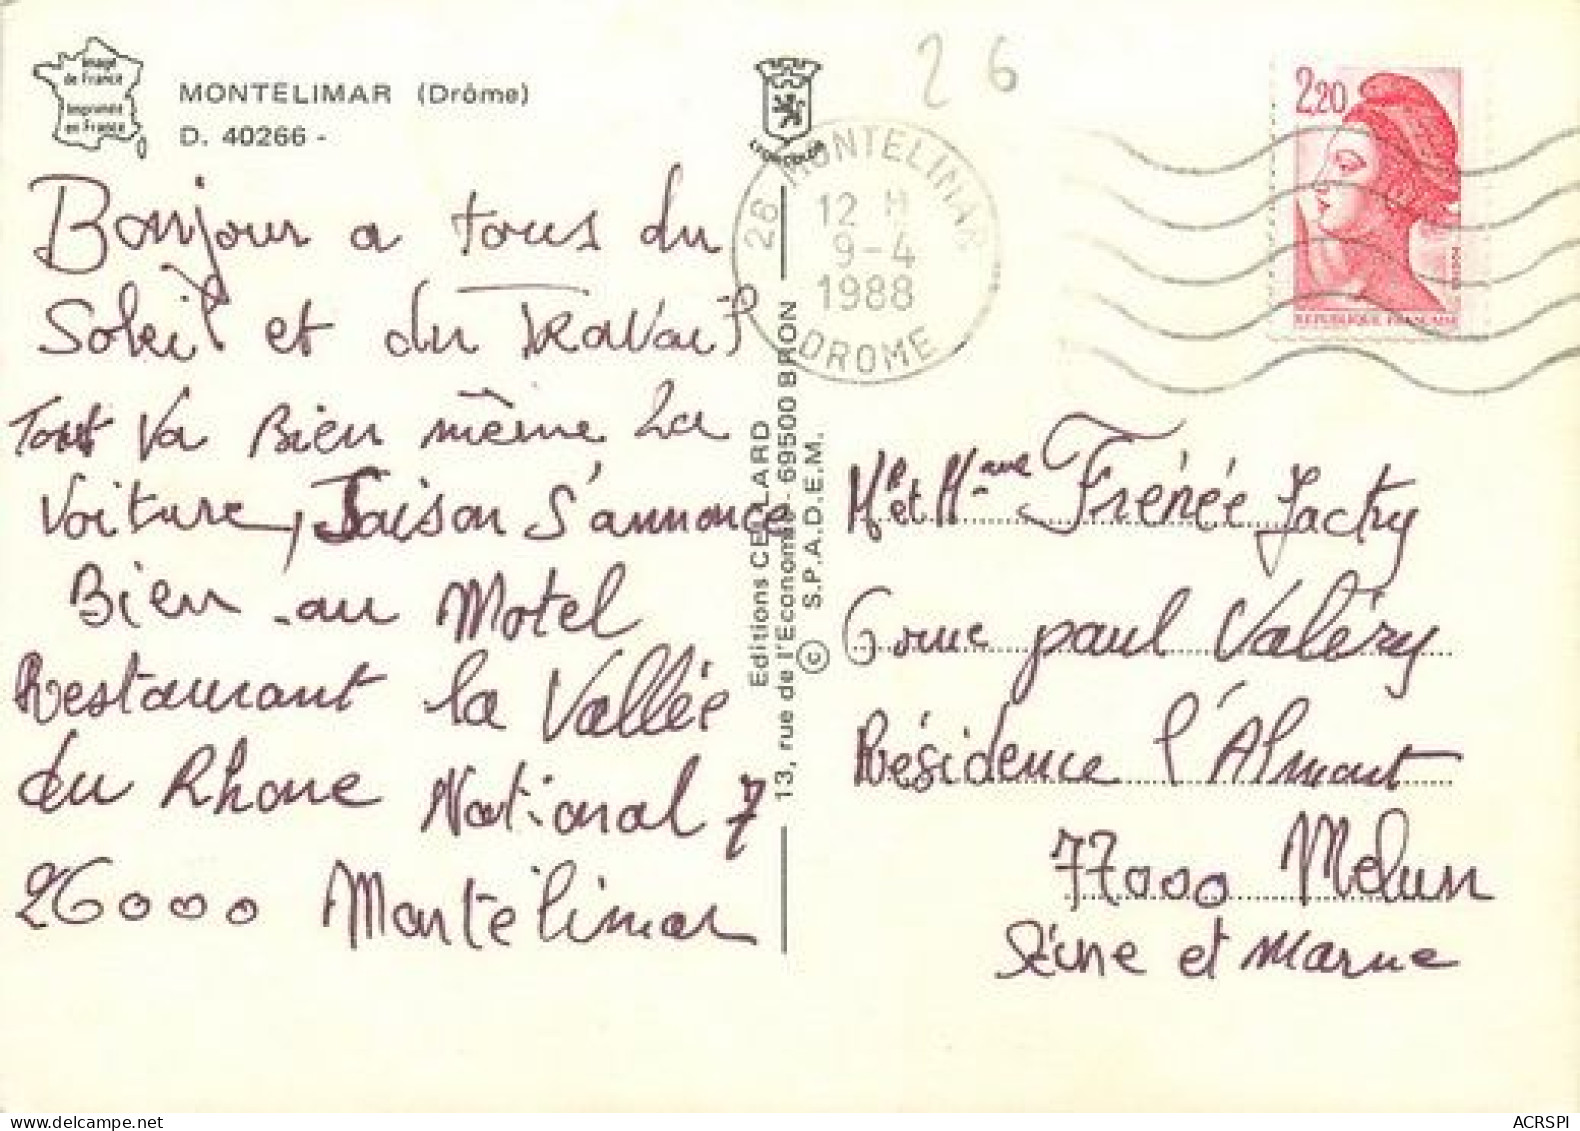 Image
de France
Imprimée
en France
MONTÉLIMAR (Drôme)
D. 40266 -
Bonjour a tous du
Soleil et du Travail
Tout Va Bien même La
Voiture, Saison S'annonce
Bien au Motel
Restaurant la Vallée
du Rhone National 7
26000 Montélimar
LYON COLOR
Editions CELLARD
13, rue de l'Economie - 69500 BRON
© S.P.A.D.E.M.
26
26 MONTELIMAR
12 H
9-4
1988
DROME
2,20
REPUBLIQUE FRANCAISE
Mr et Mme Frénée Jacky
6 rue paul Valéry
Résidence l'Almont
77000 Melun
Séine et Marne
ACRSPI